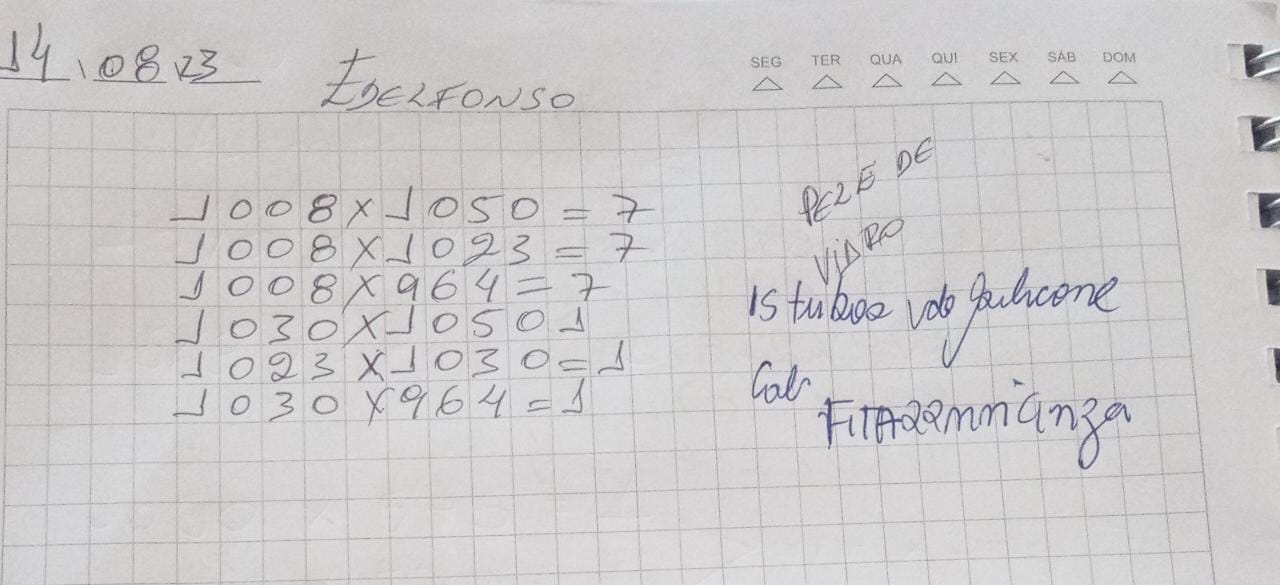 14.08.23
IDELFONSO
SEG TER QUA QUI SEX SÁB DOM
1008X1050=7
1008X1023=7
1008X964=7
1030X1050 1
1023X1030=1
1030X964=1
PELE DE
VIDRO
15 tubos de silicone
FITA 22mm Cinza